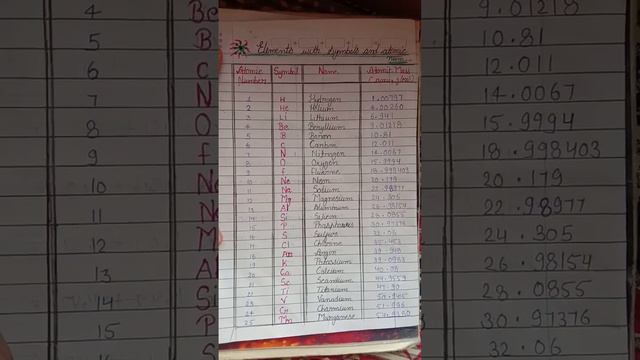 4 Be
5 B
6 C
7 N
8 O
9 f
10 Ne
11 Na
12 M
13 Al
14 Si
15 P
Elements with symbols and atomic
Atomic Symbol Name Atomic Mass
Numbers
1 H Hydrogen 1.00797
2 He Helium 4.00260
3 Li Lithium 6.941
4 Be Beryllium 9.01218
5 B Boron 10.81
6 C Carbon 12.011
7 N Nitrogen 14.0067
8 O Oxygen 15.9994
9 f Fluorine 18.998403
10 Ne Neon 20.179
11 Na Sodium 22.98977
12 Mg Magnesium 24.305
13 Al Aluminum 26.98154
14 Si Silicon 28.0855
15 P Phosphorus 30.97376
16 S Sulfur 32.06
17 Cl Chlorine 35.453
18 Argon 39.948
19 K Potassium 39.0983
20 Ca Calcium 40.08
21 Sc Scandium 44.9559
Ti Titanium 47.90
23 V Vanadium 50.9415
24 Cr Chromium 51.996
25 Mn Manganese 54.9380
9.01218
10.81
12.011
14.0067
15.9994
18.998403
20.179
22.98977
24.305
26.98154
28.0855
30.97376
32.06